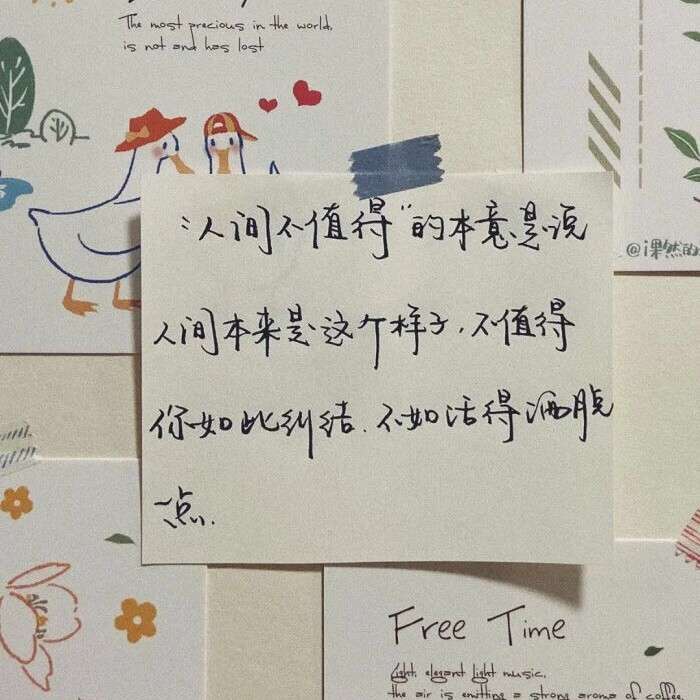 The most precious in the world,
is not and has lost
@i课然的
"人间不值得"的本意是说
人间本来是这个样子,不值得
你如此纠结.不如活得洒脱
一点.
Free Time
light, elegant light music,
the air is emitting a strong aroma of coffee.